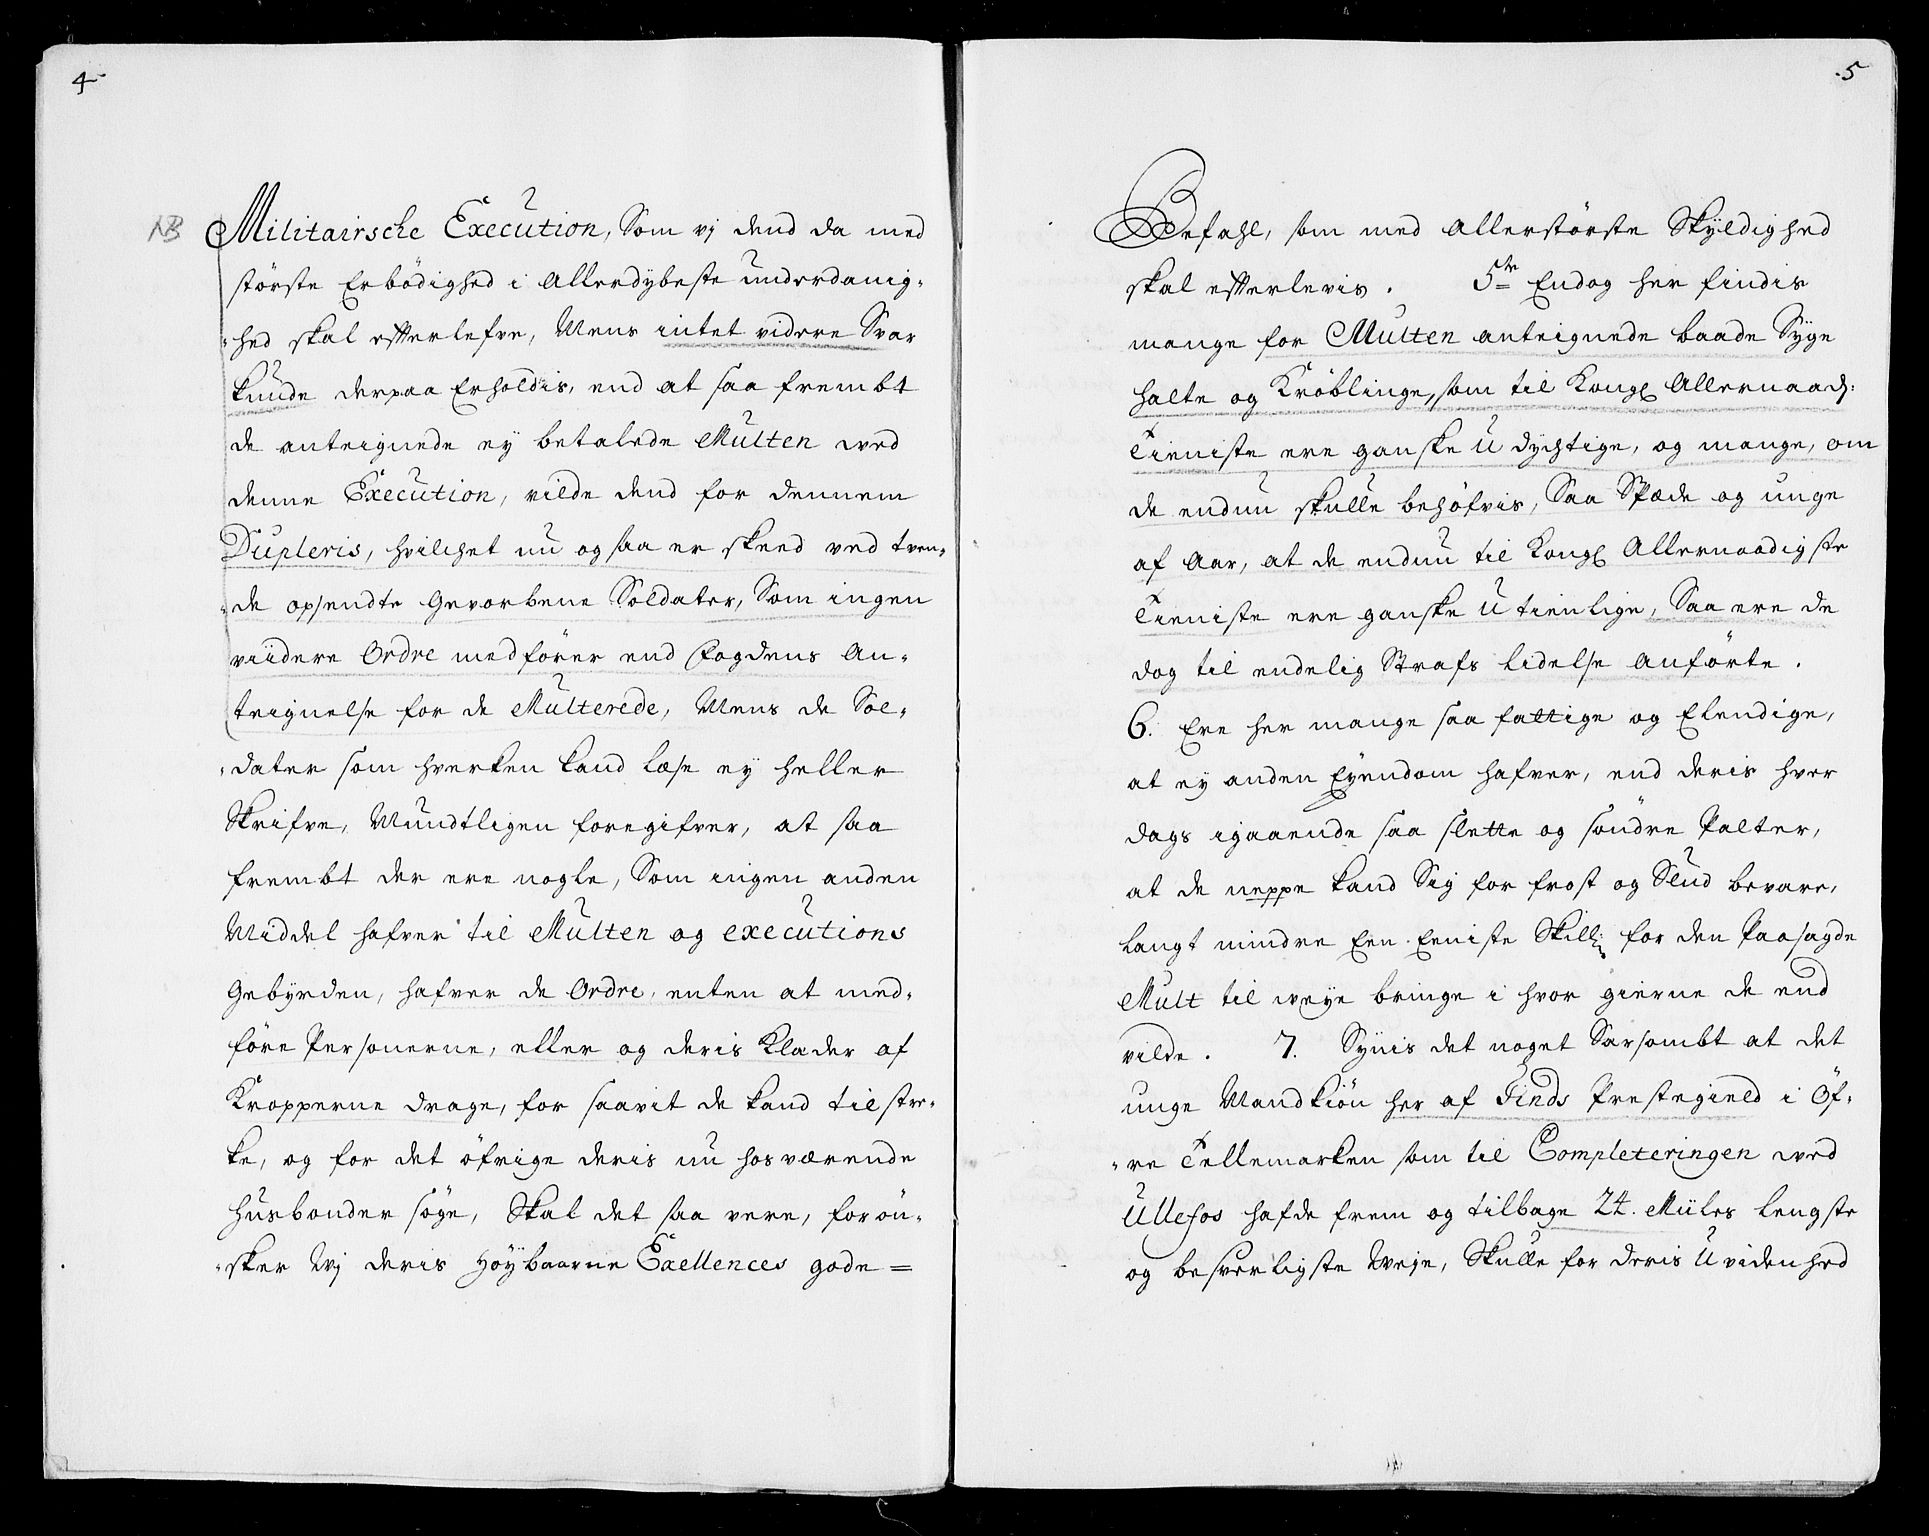 4
NB Militairsche Execution, Som vj dend da med
störste Erbödighed i Allerdybeste underdanig-
hed skal efterlefve, Mens intet videre Svar
kunde derpaa Erholdis, end at saa frembt
de anteignede ey betalede Multen med
denne Execution, vilde dend for dennem
Dupleris, hvilchet nu og saa er skeed ved tven-
de opsendte Gevorbene Soldater, Som ingen
viidere Ordre medfører end Fogdens An-
teignelse for de Multerede, Mens de Sol-
dater som hverken kand læse ey heller
Skrifve, Mundtligen foregifver, at saa
frembt der ere nogle, Som ingen anden
Middel hafver til Multen og executions
Gebyrden, hafver de Ordre, enten at med-
före Personerne, eller og deris Klæder af
Kropperne drage, for saavit de kand tilstre-
ke, og for det öfrige deris nu hosværende
Husbonder söge, Skal det saa vere, forön-
sker Wj deris Höybaarne Exellences gode=
5
Befahl, som med Allerstörste Skyldighed
skal efterlevis. 5te Endog her findis
mange for Multen anteignede baade Syge
halte og Kröblinge, som til Kongl Allernaad:
Tieniste ere ganske U dychtige, og mange, om
de endnu skulle behöfvis, Saa Spæde og unge
af Aar, at de endnu til Kongl Allernaadigste
Tieniste ere ganske U tienlige, Saa ere de
dog til endelig Strafs Lidelse anförte.
6. Ere her mange saa fattige og Elendige,
at ey anden Eyendom hafver, end deris hver
dags igaaende saa slette og söndre Palter,
at de neppe kand Sig for frost og Slud bevare,
langt mindre Een Eeniste Skill: for den Paasagde
Mult til weye bringe i hvor gierne de end
vilde. 7. Synis det noget Sarsombt at det
unge Mandkiön her af Tinds Prestegield i Öf-
re Tellemarken som til Completeringen ved
Ullefos hafde frem og tilbage 24. Miiles Lengste
og besverligste Weje, Skulle for deris U videnhed